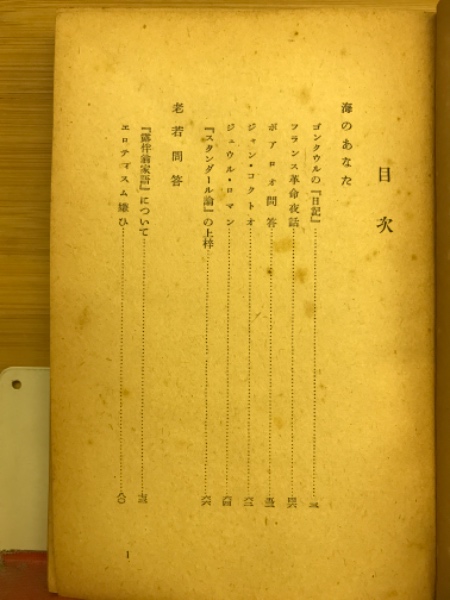 目次
海のあなた
ゴンクウルの『日記』…………三
フランス革命夜話…………四六
ボアロオ問答…………五一
ジャン・コクトオ…………六二
ジュウル・ロマン…………六四
『スタンダール論』の上梓…………六六
老若問答
『露伴翁家語』について…………七三
エロテマスム嫌ひ…………八〇
1